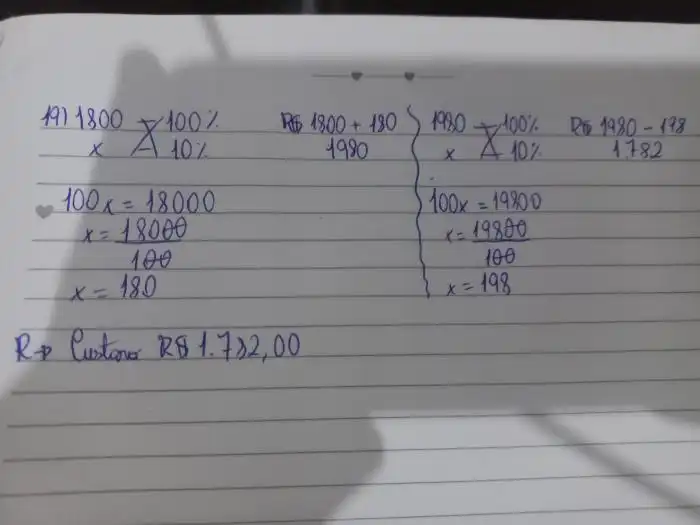 19) 1800 100%
x 10%
R$ 1800 + 180
1980
100x = 18000
x = 18000
100
x = 180
1980 100%
x 10%
R$ 1980 - 198
1.782
100x = 19800
x = 19800
100
x = 198
R→ Custará R$ 1.782,00